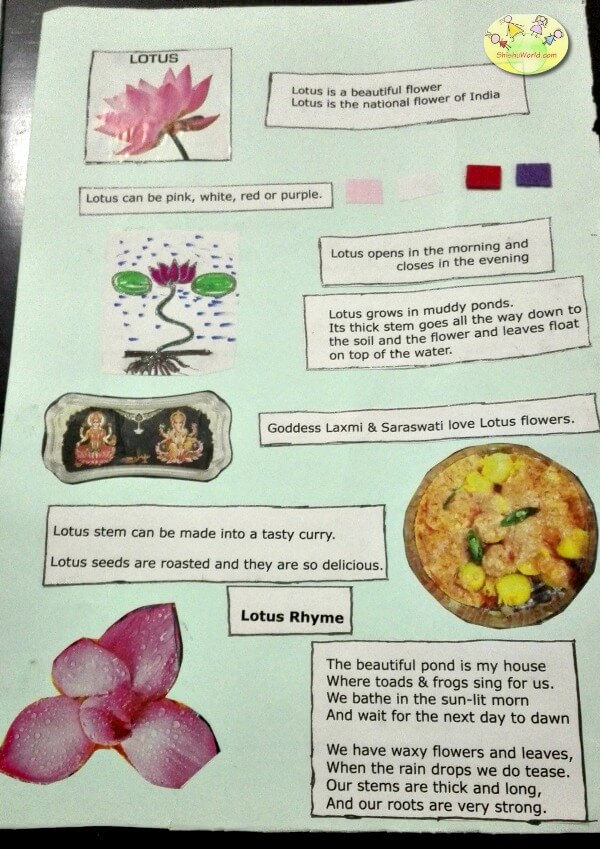 ShishuWorld.com
LOTUS
Lotus is a beautiful flower
Lotus is the national flower of India
Lotus can be pink, white, red or purple.
Lotus opens in the morning and
closes in the evening
Lotus grows in muddy ponds.
Its thick stem goes all the way down to
the soil and the flower and leaves float
on top of the water.
Goddess Laxmi & Saraswati love Lotus flowers.
Lotus stem can be made into a tasty curry.
Lotus seeds are roasted and they are so delicious.
Lotus Rhyme
The beautiful pond is my house
Where toads & frogs sing for us.
We bathe in the sun-lit morn
And wait for the next day to dawn
We have waxy flowers and leaves,
When the rain drops we do tease.
Our stems are thick and long,
And our roots are very strong.